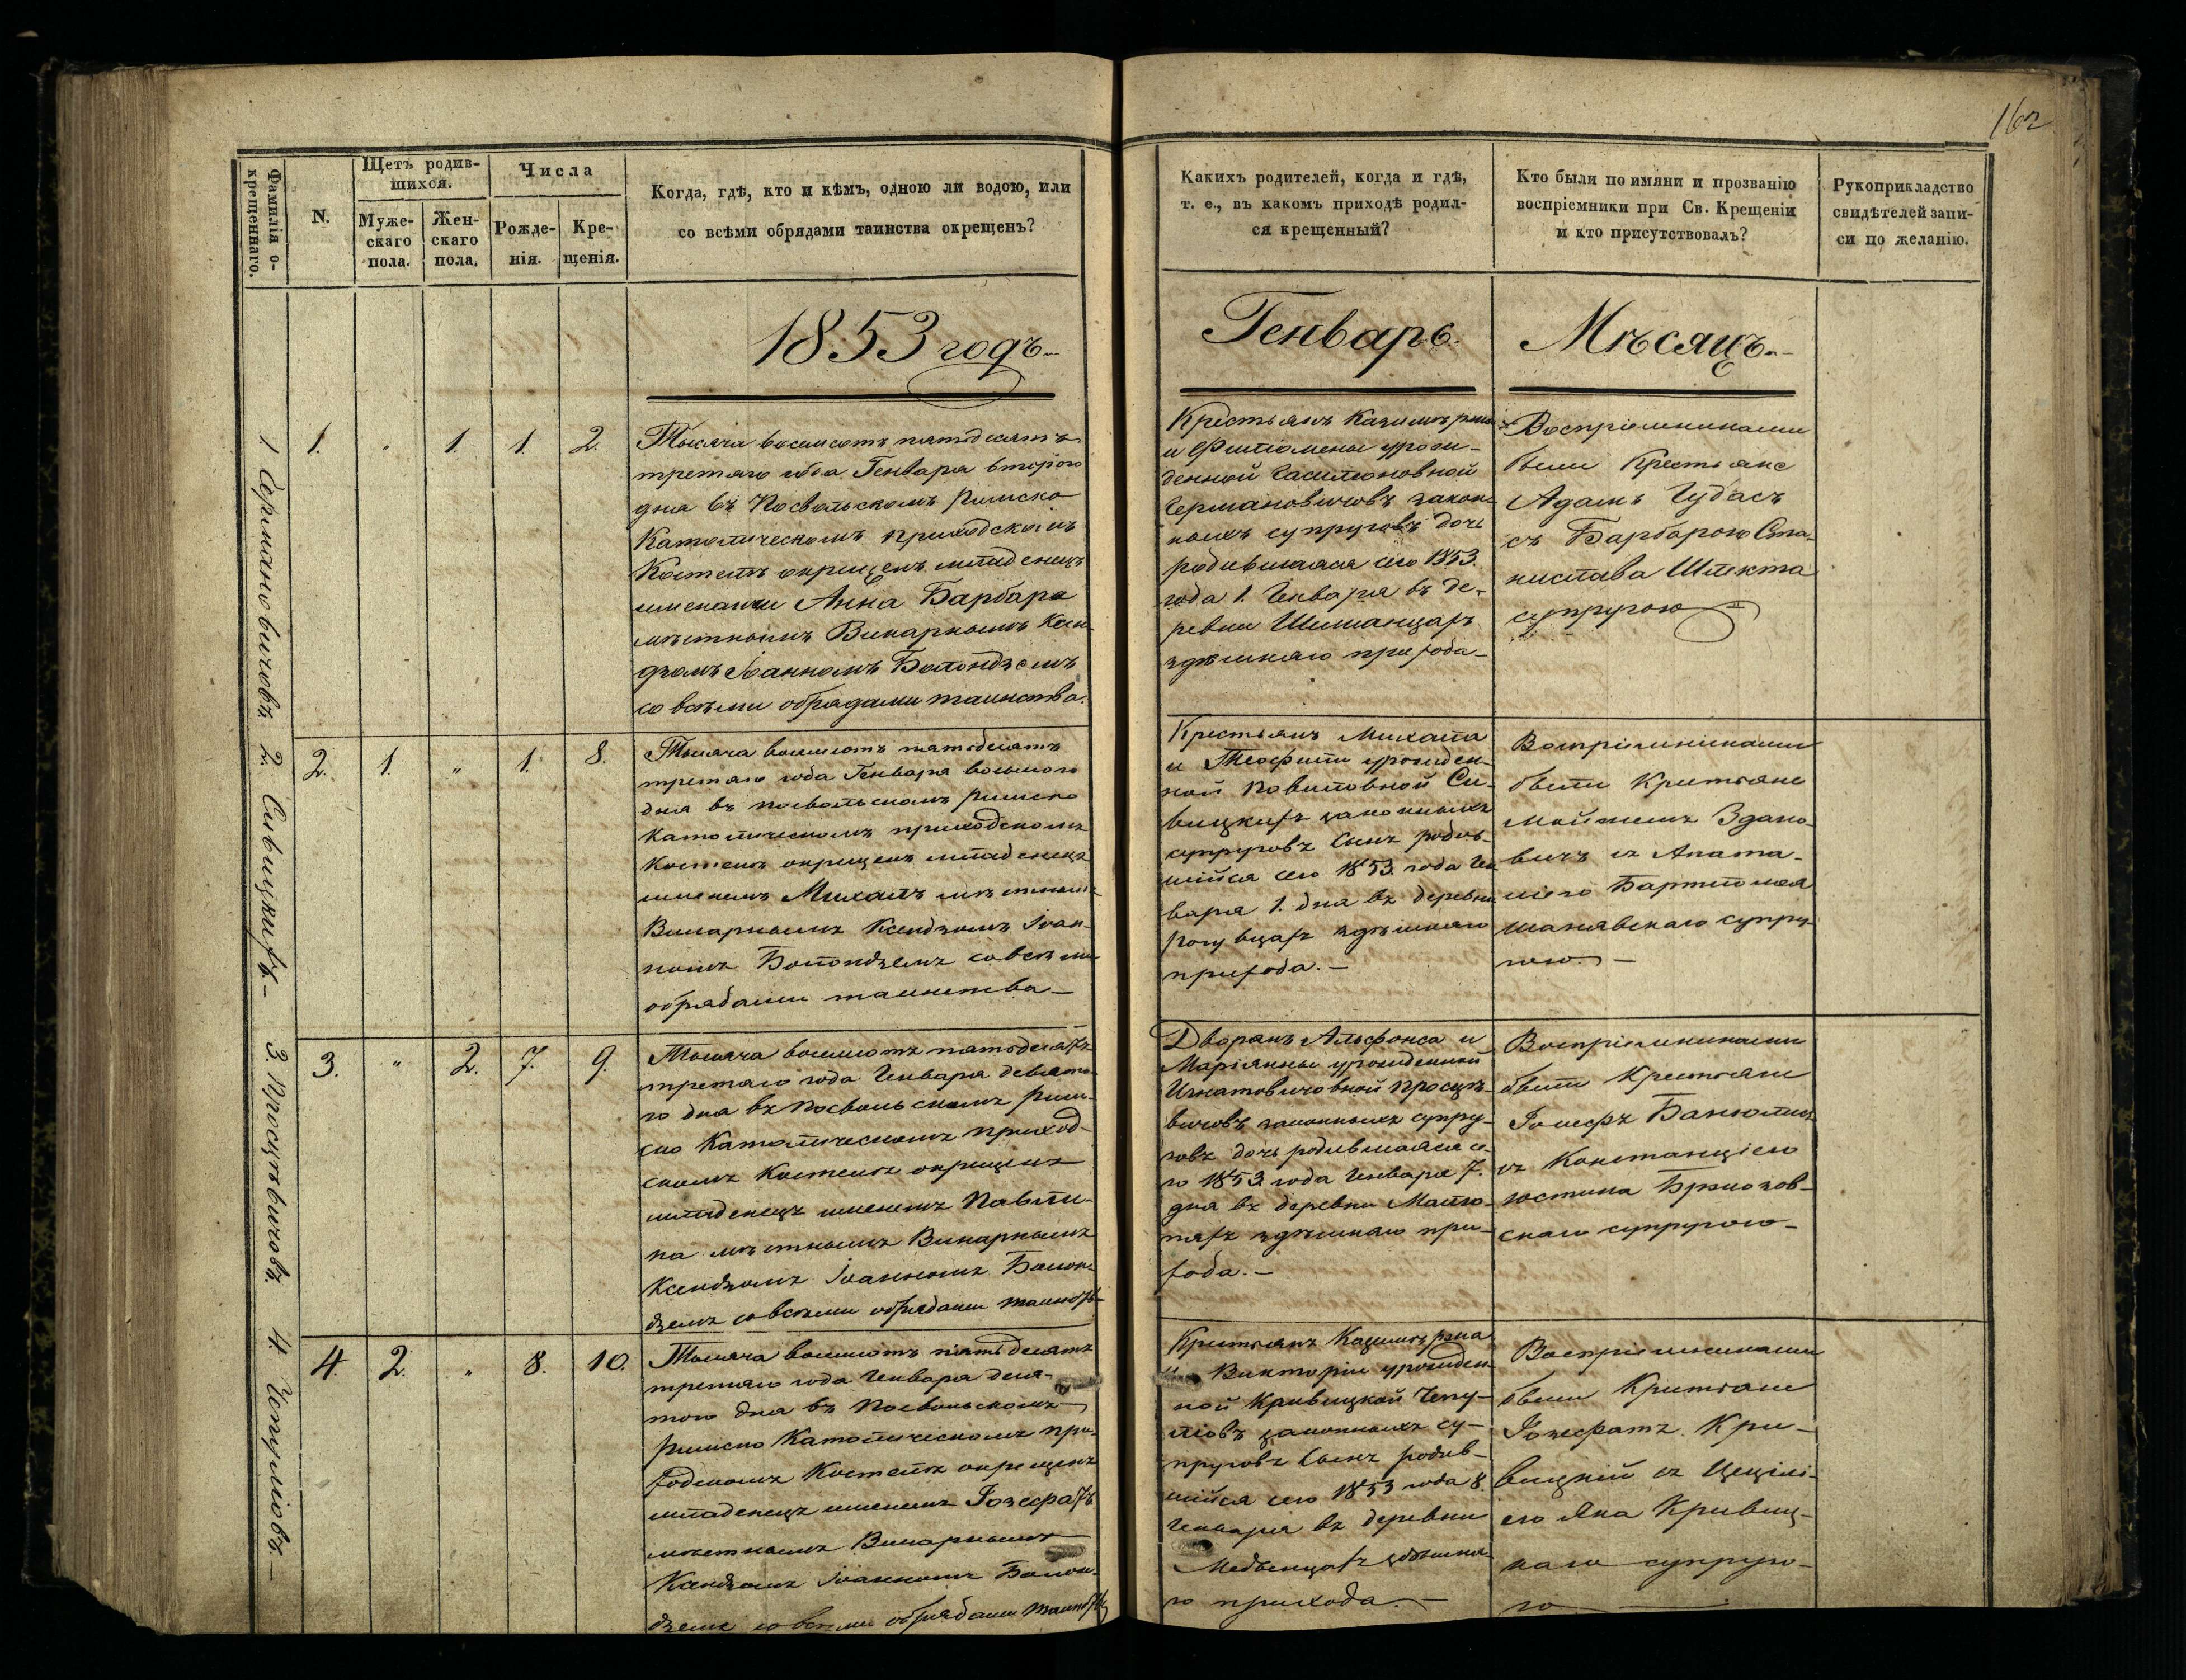 162
Фамилія о-
крещеннаго.
N.
Щетъ родив-
шихся.
Муже-
скаго
пола.
Жен-
скаго
пола.
Числа
Рожде-
нія.
Кре-
щенія.
Когда, гдѣ, кто и кѣмъ, одною ли водою, или
со всѣми обрядами таинства окрещенъ?
Какихъ родителей, когда и гдѣ,
т. е., въ какомъ приходѣ родил-
ся крещенный?
Кто были по имяни и прозванію
воспріемники при Св. Крещеніи
и кто присутствовалъ?
Рукоприкладство
свидѣтелей запи-
си по желанію.
1853 годъ.
Генварь.
Мѣсяцъ.
1 Германовичовъ
1. " 1. 1. 2.
Тысяча восемсотъ пятдесятъ
третяго года Генваря второго
дня въ Посвольскомъ Римско
Католическомъ приходскомъ
Костелѣ окрещенъ младенецъ
именами Анна Барбара
мѣстнымъ Викарнымъ Ксен-
дзомъ Іоанномъ Болондземъ
со всѣми обрядами таинства.
Крестьянъ Казимѣра
и Филіомены урож-
денной
Германовичовъ закон-
ныхъ супруговъ дочь
родившаяся сего 1853.
года 1. Генваря въ де-
ревни Шиманцахъ
здѣшняго прихода
Воспріемниками
были Крестьяне
Адамъ Чубасъ
съ Барбарою Ста-
нислава Шлекта
супругою
2. Сивицкихъ
2. 1. " 1. 8.
Тысяча восемсотъ пятдесятъ
третяго года Генваря восьмого
дня въ Посвольскомъ Римско
Католическомъ приходскомъ
Костелѣ окрещенъ младенецъ
именемъ Михаилъ мѣстнымъ
Викарнымъ Ксендзомъ Іоан-
номъ Болондземъ со всѣми
обрядами таинства
Крестьянъ Михаила
и Теофили урожден-
ной Повиловной Си-
вицкихъ законныхъ
супруговъ Сынъ родив-
шійся сего 1853. года Ген-
варя 1. дня въ деревни
здѣшняго
прихода.
Воспріемниками
были Крестьяне
Здано-
вичъ съ
Бартломея
супру-
гою.
3. Просцѣвичовъ.
3. " 2. 7. 9.
Тысяча восемсотъ пятдесятъ
третяго года Генваря девято-
го дня въ Посвольскомъ Рим-
ско Католическомъ приход-
скомъ Костелѣ окрещенъ
младенецъ именемъ Павли-
на мѣстнымъ Викарнымъ
Ксендзомъ Іоанномъ Болон-
дземъ со всѣми обрядами таинства
Дворянъ Альфонса и
Маріянны урожденной
Игнатовичовной Просцѣ-
вичовъ законныхъ супру-
говъ дочь родившаяся се-
го 1853 года Генваря 7.
дня въ деревни
здѣшняго при-
хода.
Воспріемниками
были Крестьяне
Іосифъ
съ Констанціею
Юстина
скаго супругою
4. Чепуліовъ.
4. 2. " 8. 10.
Тысяча восемсотъ пятьдесятъ
третяго года Генваря деся-
того дня въ Посвольскомъ
Римско Католическомъ при-
ходскомъ Костелѣ окрещенъ
младенецъ именемъ Іозефатъ
мѣстнымъ Викарнымъ
Ксендзомъ Іоанномъ Болон-
дземъ со всѣми обрядами таинства
Крестьянъ Казимѣра
и Викторіи урожден-
ной Кривицкой Чепу-
ліовъ законныхъ су-
пруговъ Сынъ родив-
шійся сего 1853 года 8
Генваря въ деревни
здѣшня-
го прихода.
Воспріемниками
были Крестьяне
Іозефатъ Кри-
вицкій съ Цециліі-
ею Яна Кривиц-
каго супруго-
ю